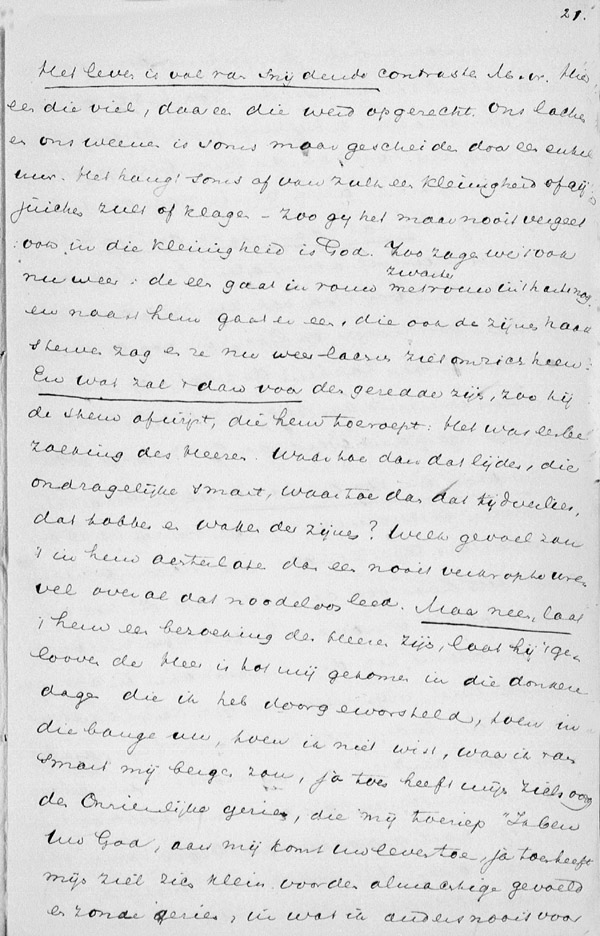 21.
Het leven is vol van snijdende contrasten M. v. Hier
een die viel, daar een die werd opgerecht. Ons lachen
en ons weenen is soms maar gescheiden door een enkel
uur. Het hangt soms af van zulk een kleinigheid of gij
juichen zult of klagen – zoo gij het maar nooit vergeet
ook in die kleinigheid is God. Zoo zagen wij 't ook
nu weer: de een gaat in rouw met rouw in 't hart nog
zwarte
en naast hem gaat er een, die ook de zijnen haast
sterven zag en ze nu weer lachen ziet om zich heen.
En wat zal 't dan voor den geredde zijn, zoo hij
de stem afwijst, die hem toeroept: Het was een be
zoeking des Heeren. Waartoe dan dat lijden, die
ondragelijke smart, waartoe dan dat tijdverlies,
dat tobben en waken der zijnen? Welk gevoel zou
't in hem achterlaten dan een nooit verkropte wre-
vel over al dat noodeloos leed. Maar neen, laat
't hem een bezoeking des Heeren zijn, laat hij 't ge-
looven de Heer is tot mij gekomen in die donkere
dagen die ik heb doorgeworsteld, toen in
die bange uur, toen ik niet wist, waar ik van
smart mij bergen zou, ja toen heeft mijn ziels oog
den Onzienlijke gezien, die mij toeriep "Ik ben
uw God, aan mij komt uw leven toe, ja toen heeft
mijn ziel zich klein voor den almachtige gevoeld
en zonde gezien, in wat ik anders nooit voor